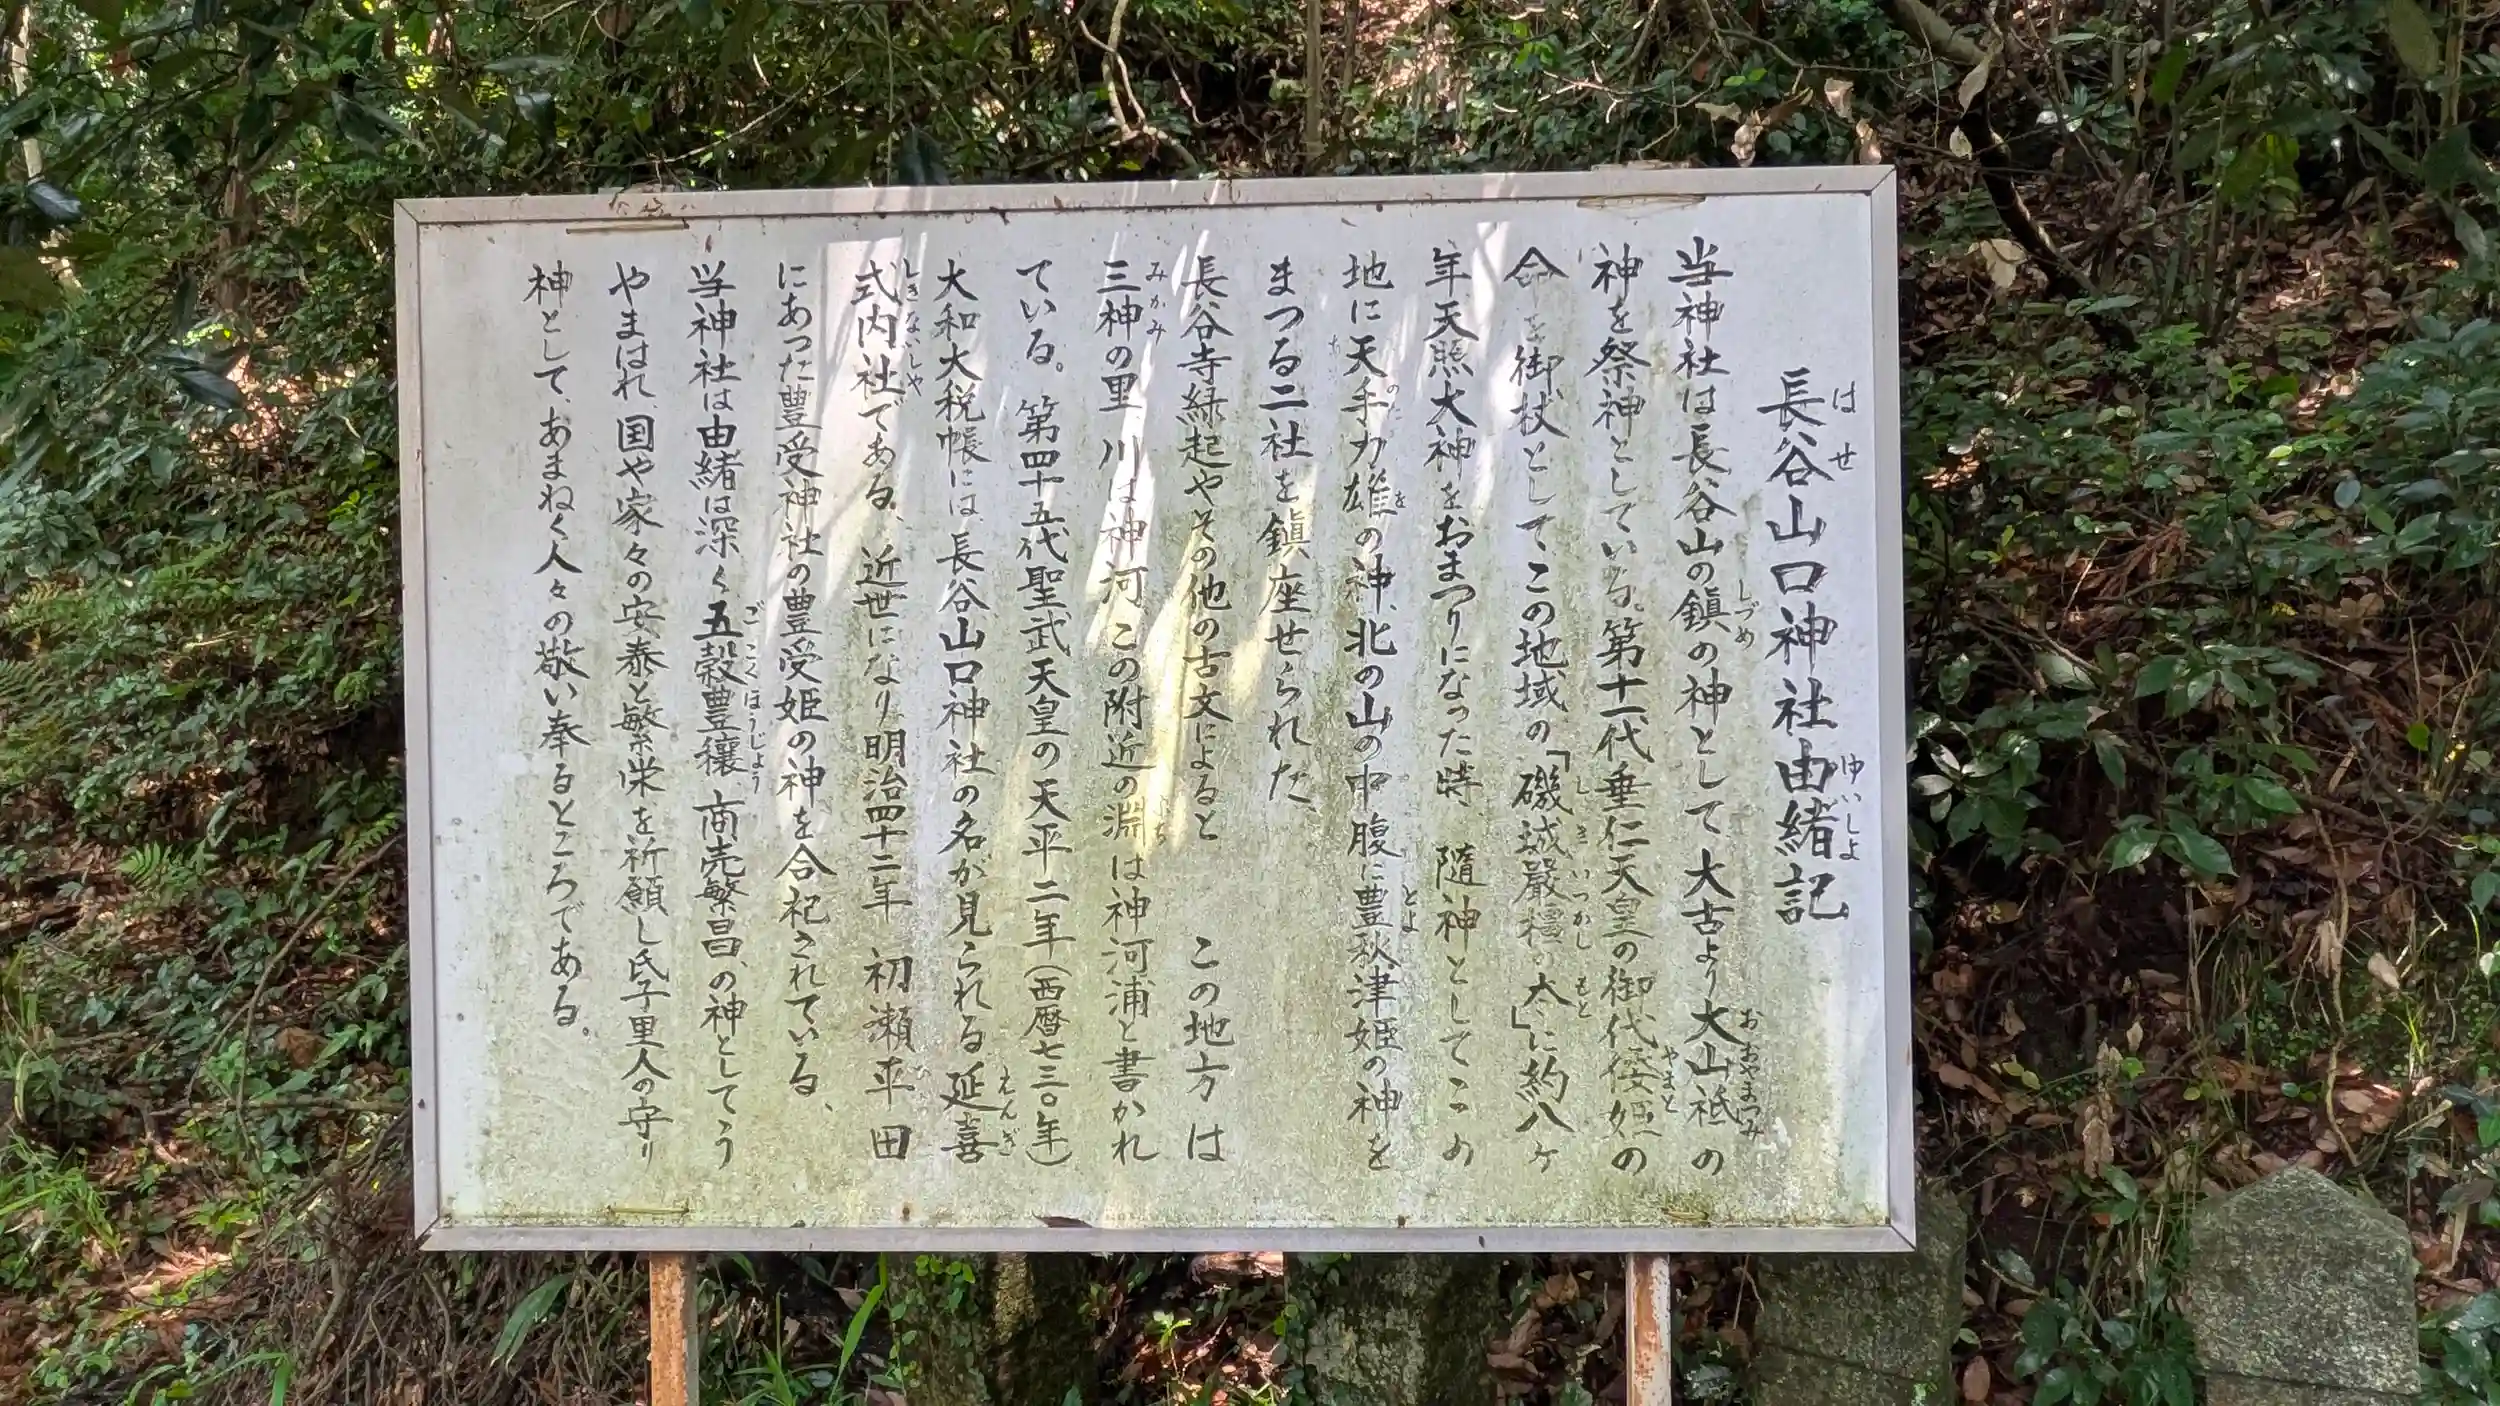 長谷山口神社由緒記
当神社は長谷山の鎮の神として大古より大山祗の
神を祭神としている。第十一代垂仁天皇の御代倭姫の
命を御杖として、この地域の「磯城嚴橿の本」に約八ヶ
年、天照大神をおまつりになった時、隨神としてこの
地に天手力雄の神、北の山の中腹に豊秋津姫の神を
まつる二社を鎮座せられた、
長谷寺緑起やその他の古文によると この地方は
三神の里 川は神河 この附近の淵は神河浦と書かれ
ている。第四十五代聖武天皇の天平二年(西暦七三〇年)
大和大税帳には、長谷山口神社の名が見られる延喜
式内社である、近世になり明治四十二年 初瀬平田
にあった豊受神社の豊受姫の神を合祀されている、
当神社は由緒は深く五穀豊穣、商売繁昌、の神としてう
やまはれ、国や家々の安泰と繁栄を祈願し氏子里人の守り
神として、あまねく人々の敬い奉るところである。